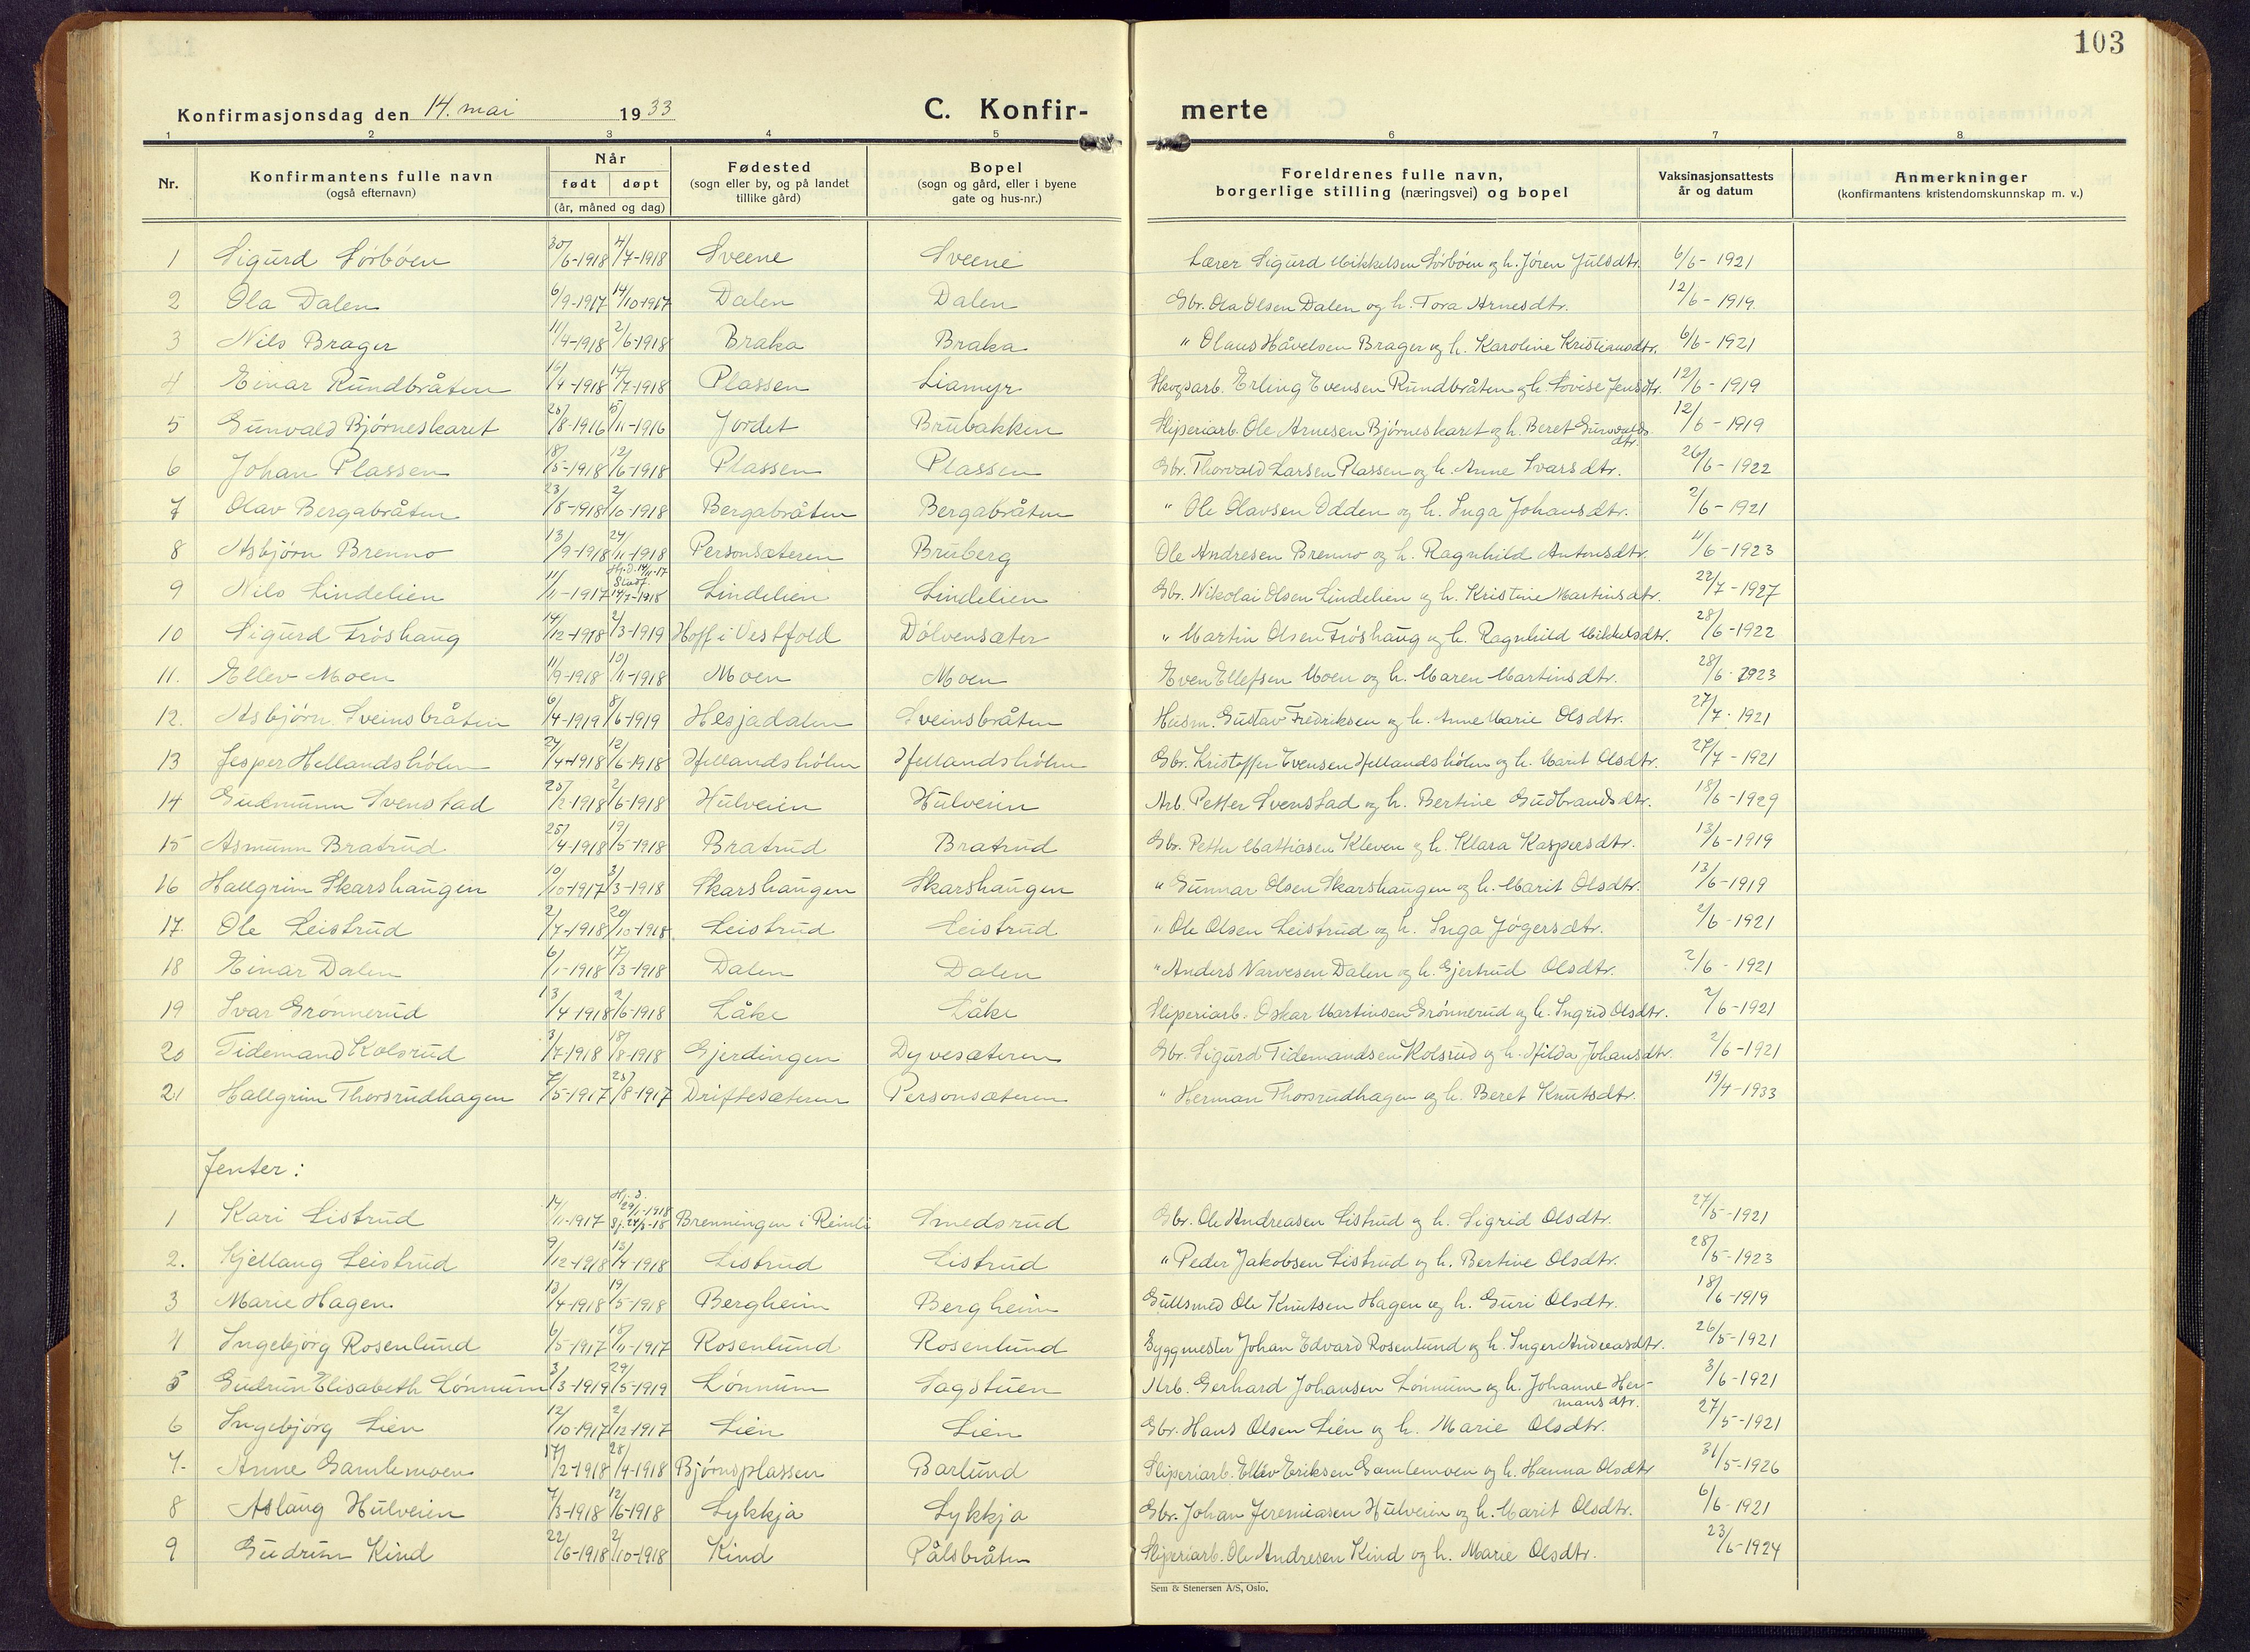 103
Konfirmasjonsdag den 14. mai 1933 C. Konfir- merte
1 2 3 4 5 6 7 8
Nr. Konfirmantens fulle navn (også efternavn) Når født døpt (år, måned og dag) Fødested (sogn eller by, og på landet tillike gård) Bopel (sogn og gård, eller i byene gate og hus-nr.) Foreldrenes fulle navn, borgerlige stilling (næringsvei) og bopel Vaksinasjonsattests år og datum Anmerkninger (konfirmantens kristendomskunnskap m. v.)
1 Sigurd Sørbøen 30/6-1918 4/7-1918 Sveene Sveene Lærer Sigurd Mikkelsen Sørbøen og h. Jøren Julsdtr. 6/6-1921
2 Ola Dalen 6/9-1917 14/10-1917 Dalen Dalen Gbr. Ola Olsen Dalen og h. Tora Arnesdtr. 12/6-1919.
3 Nils Brager 11/4-1918 2/6-1918 Braka Braka " Olaus Håvelsen Brager og h. Karoline Kristiansdtr. 6/6-1921
4 Einar Rundbråten 16/4-1918 14/7-1918 Plassen Liamyr Skogsarb. Erling Evensen Rundbråten og h. Lovise Jensdtr. 12/6-1919
5 Gunvald Bjørneskaret 25/8-1916 5/11-1916 Jordet Brubakken Sliperiarb. Ole Arnesen Bjørneskaret og h. Beret Gunvalds-
dtr. 12/6-1919
6 Johan Plassen 18/5-1918 12/6-1918 Plassen Plassen Gbr. Thorvald Larsen Plassen og h. Anne Ivarsdtr. 26/6-1922
7 Olav Bergabråten 23/8-1918 2/10-1918 Bergabråten Bergabråten " Ole Olavsen Odden og h. Inga Johansdtr. 2/6-1921
8 Asbjørn Brenno 13/9-1918 24/11-1918 Personsæteren Bruberg Ole Andresen Brenno og h. Ragnhild Antonsdtr. 4/6-1923
9 Nils Lindelien 11/11-1917 Hj.d. 14/11-17 14/7-1918 Lindelien Lindelien Gbr. Nikolai Olsen Lindelien og h. Kristine Martinsdtr. 22/7-1927
10 Sigurd Frøshaug 14/12-1918 2/3-1919 Hoff i Vestfold Dølvensæter " Martin Olsen Frøshaug og h. Ragnhild Mikkelsdtr. 28/6-1922
11. Ellev Moen 11/9-1918 10/11-1918 Moen Moen Even Ellefsen Moen og h. Maren Martinsdtr. 28/6-1923
12. Asbjørn Sveinsbråten 6/4-1919 8/6-1919 Hesjadalen Sveinsbråten Husm. Gustav Fredriksen og h. Anne Marie Olsdtr. 27/7-1921
13 Jesper Hellandshølen 24/4-1918 12/6-1918 Hellandshølen Hellandshølen Gbr. Kristoffer Evensen Hellandshølen og h. Marit Olsdtr. 27/7-1921
14 Gudmunn Svenstad 25/2-1918 2/6-1918 Hulveien Hulveien Arb. Petter Svenstad og h. Bertine Gudbrandsdtr. 18/6-1929
15 Asmunn Bratrud 25/4-1918 19/5-1918 Bratrud Bratrud Gbr. Petter Mattiasen Kleven og h. Klara Kaspersdtr. 13/6-1919
16 Hallgrim Skarshaugen 10/10-1917 3/3-1918 Skarshaugen Skarshaugen " Gunnar Olsen Skarshaugen og h. Marit Olsdtr. 13/6-1919
17. Ole Leistrud 2/7-1918 20/10-1918 Leistrud Leistrud " Ole Olsen Leistrud og h. Inga Jøgersdtr. 2/6-1921
18 Einar Dalen 6/1-1918 17/3-1918 Dalen Dalen " Anders Narvesen Dalen og h. Gjertrud Olsdtr. 2/6-1921
19 Ivar Grønnerud 13/4-1918 2/6-1918 Låke Låke Sliperiarb. Oskar Martinsen Grønnerud og h. Ingrid Olsdtr. 2/6-1921
20 Tidemand Kolsrud 3/7-1918 18/8-1918 Gjerdingen Dyvesæteren Gbr. Sigurd Tidemandsen Kolsrud og h. Hilda Johansdtr. 2/6-1921
21 Hallgrim Thorsrudhagen 7/5-1917 25/8-1917 Driftesæteren Personsæteren " Herman Thorsrudhagen og h. Beret Knutsdtr. 19/4-1933
Jenter:
1 Kari Listrud 14/11-1917 Hj.d. 29/1-1918 Brenningen i Reinli Smedsrud Gbr. Ole Andreasen Listrud og h. Sigrid Olsdtr. 27/5-1921
2. Kjellaug Leistrud 9/12-1918 13/4-1918 Listrud Listrud " Peder Jakobsen Listrud og h. Bertine Olsdtr. 28/5-1923
3 Marie Hagen 13/4-1918 19/5-1918 Bergheim Bergheim Gullsmed Ole Knutsen Hagen og h. Guri Olsdtr. 18/6-1919
4 Ingebjørg Rosenlund 6/5-1917 18/11-1917 Rosenlund Rosenlund Byggmester Johan Edvard Rosenlund og h. Inger Andreasdtr. 26/5-1921
5 Gudrun Elisabeth Lønnum 3/3-1919 29/5-1919 Lønnum Sagstuen Arb. Gerhard Johansen Lønnum og h. Johanne Her-
mansdtr. 3/6-1921
6 Ingebjørg Lien 12/10-1917 2/12-1917 Lien Lien Gbr. Hans Olsen Lien og h. Marie Olsdtr. 27/5-1921
7. Anne Gamlemoen 17/2-1918 28/4-1918 Bjørnsplassen Barlund Sliperiarb. Ellev Eriksen Gamlemoen og h. Hanna Olsdtr 31/5-1926
8 Aslaug Hulveien 7/3-1918 12/6-1918 Lykkja Lykkja Gbr. Johan Jeremiasen Hulveien og h. Marit Olsdtr. 6/6-1921
9 Gudrun Kind 22/6-1918 2/10-1918 Kind Pålsbråten Sliperiarb. Ole Andresen Kind og h. Marie Olsdtr. 23/6-1924
Sem & Stenersen A/S, Oslo.